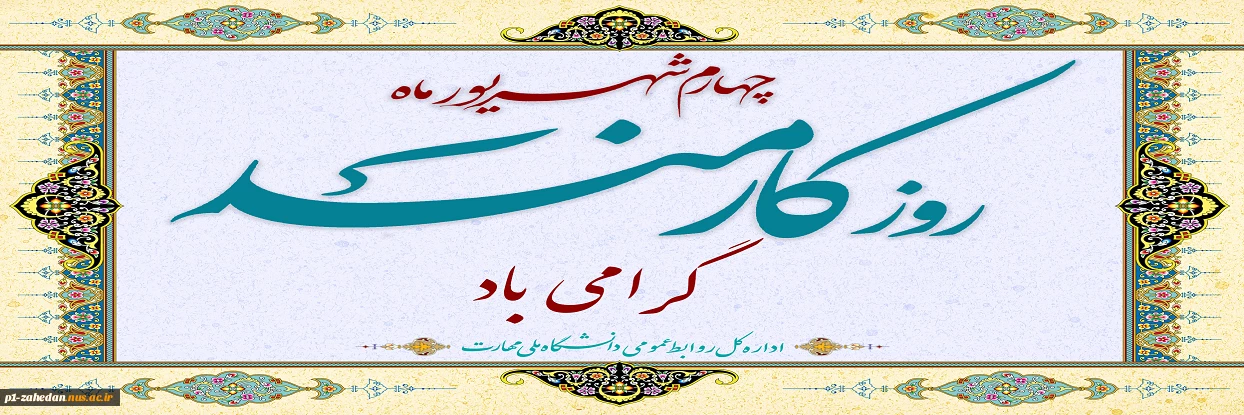 چهارم شهریور ماه
روز کارمند
گرامی باد
اداره کل روابط عمومی دانشگاه ملی مهارت
p1-zahedan.nus.ac.ir